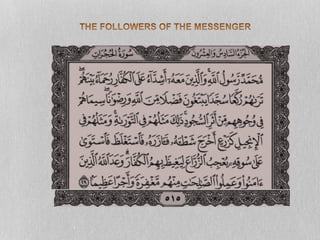 THE FOLLOWERS OF THE MESSENGER
سُورَةُ الحُجُرَاتِ الجُزْءُ السَّادِسُ وَالعِشْرُونَ
مُّحَمَّدٌ رَّسُولُ ٱللَّهِ وَٱلَّذِينَ مَعَهُۥٓ أَشِدَّآءُ عَلَى ٱلْكُفَّارِ رُحَمَآءُ بَيْنَهُمْ
تَرَىٰهُمْ رُكَّعًا سُجَّدًا يَبْتَغُونَ فَضْلًا مِّنَ ٱللَّهِ وَرِضْوَٰنًا سِيمَاهُمْ
فِى وُجُوهِهِم مِّنْ أَثَرِ ٱلسُّجُودِ ذَٰلِكَ مَثَلُهُمْ فِى ٱلتَّوْرَىٰةِ وَمَثَلُهُمْ فِى
ٱلْإِنجِيلِ كَزَرْعٍ أَخْرَجَ شَطْـَٔهُۥ فَـَٔازَرَهُۥ فَٱسْتَغْلَظَ فَٱسْتَوَىٰ
عَلَىٰ سُوقِهِۦ يُعْجِبُ ٱلزُّرَّاعَ لِيَغِيظَ بِهِمُ ٱلْكُفَّارَ وَعَدَ ٱللَّهُ ٱلَّذِينَ
ءَامَنُوا۟ وَعَمِلُوا۟ ٱلصَّٰلِحَٰتِ مِنْهُم مَّغْفِرَةً وَأَجْرًا عَظِيمًۢا ٢٩
٥١٥